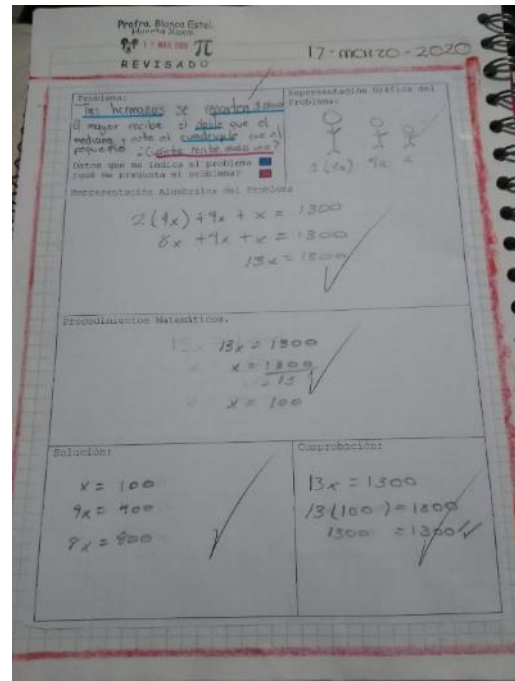 Profra. Blanca Estel.
Huerta Xoxo
17 MAR 2020 π
REVISADO
17-marzo-2020
Problema:
Tres hermanos se reparten
el mayor recibe el doble que el
mediano y este el cuadruple que el
pequeño ¿Cuánto recibe cada uno?
Datos que me indica el problema
¿Qué me pregunta el problema?
Representación Gráfica del
Problema:
2(4x) 4x x
Representación Algebraica del Problema
2(4x)+4x+x=1300
8x+4x+x=1300
13x=1300
Procedimientos Matemáticos.
13x=1300
x=1300
13
x=100
Solución:
x=100
4x=400
8x=800
Comprobación:
13x=1300
13(100)=1300
1300=1300